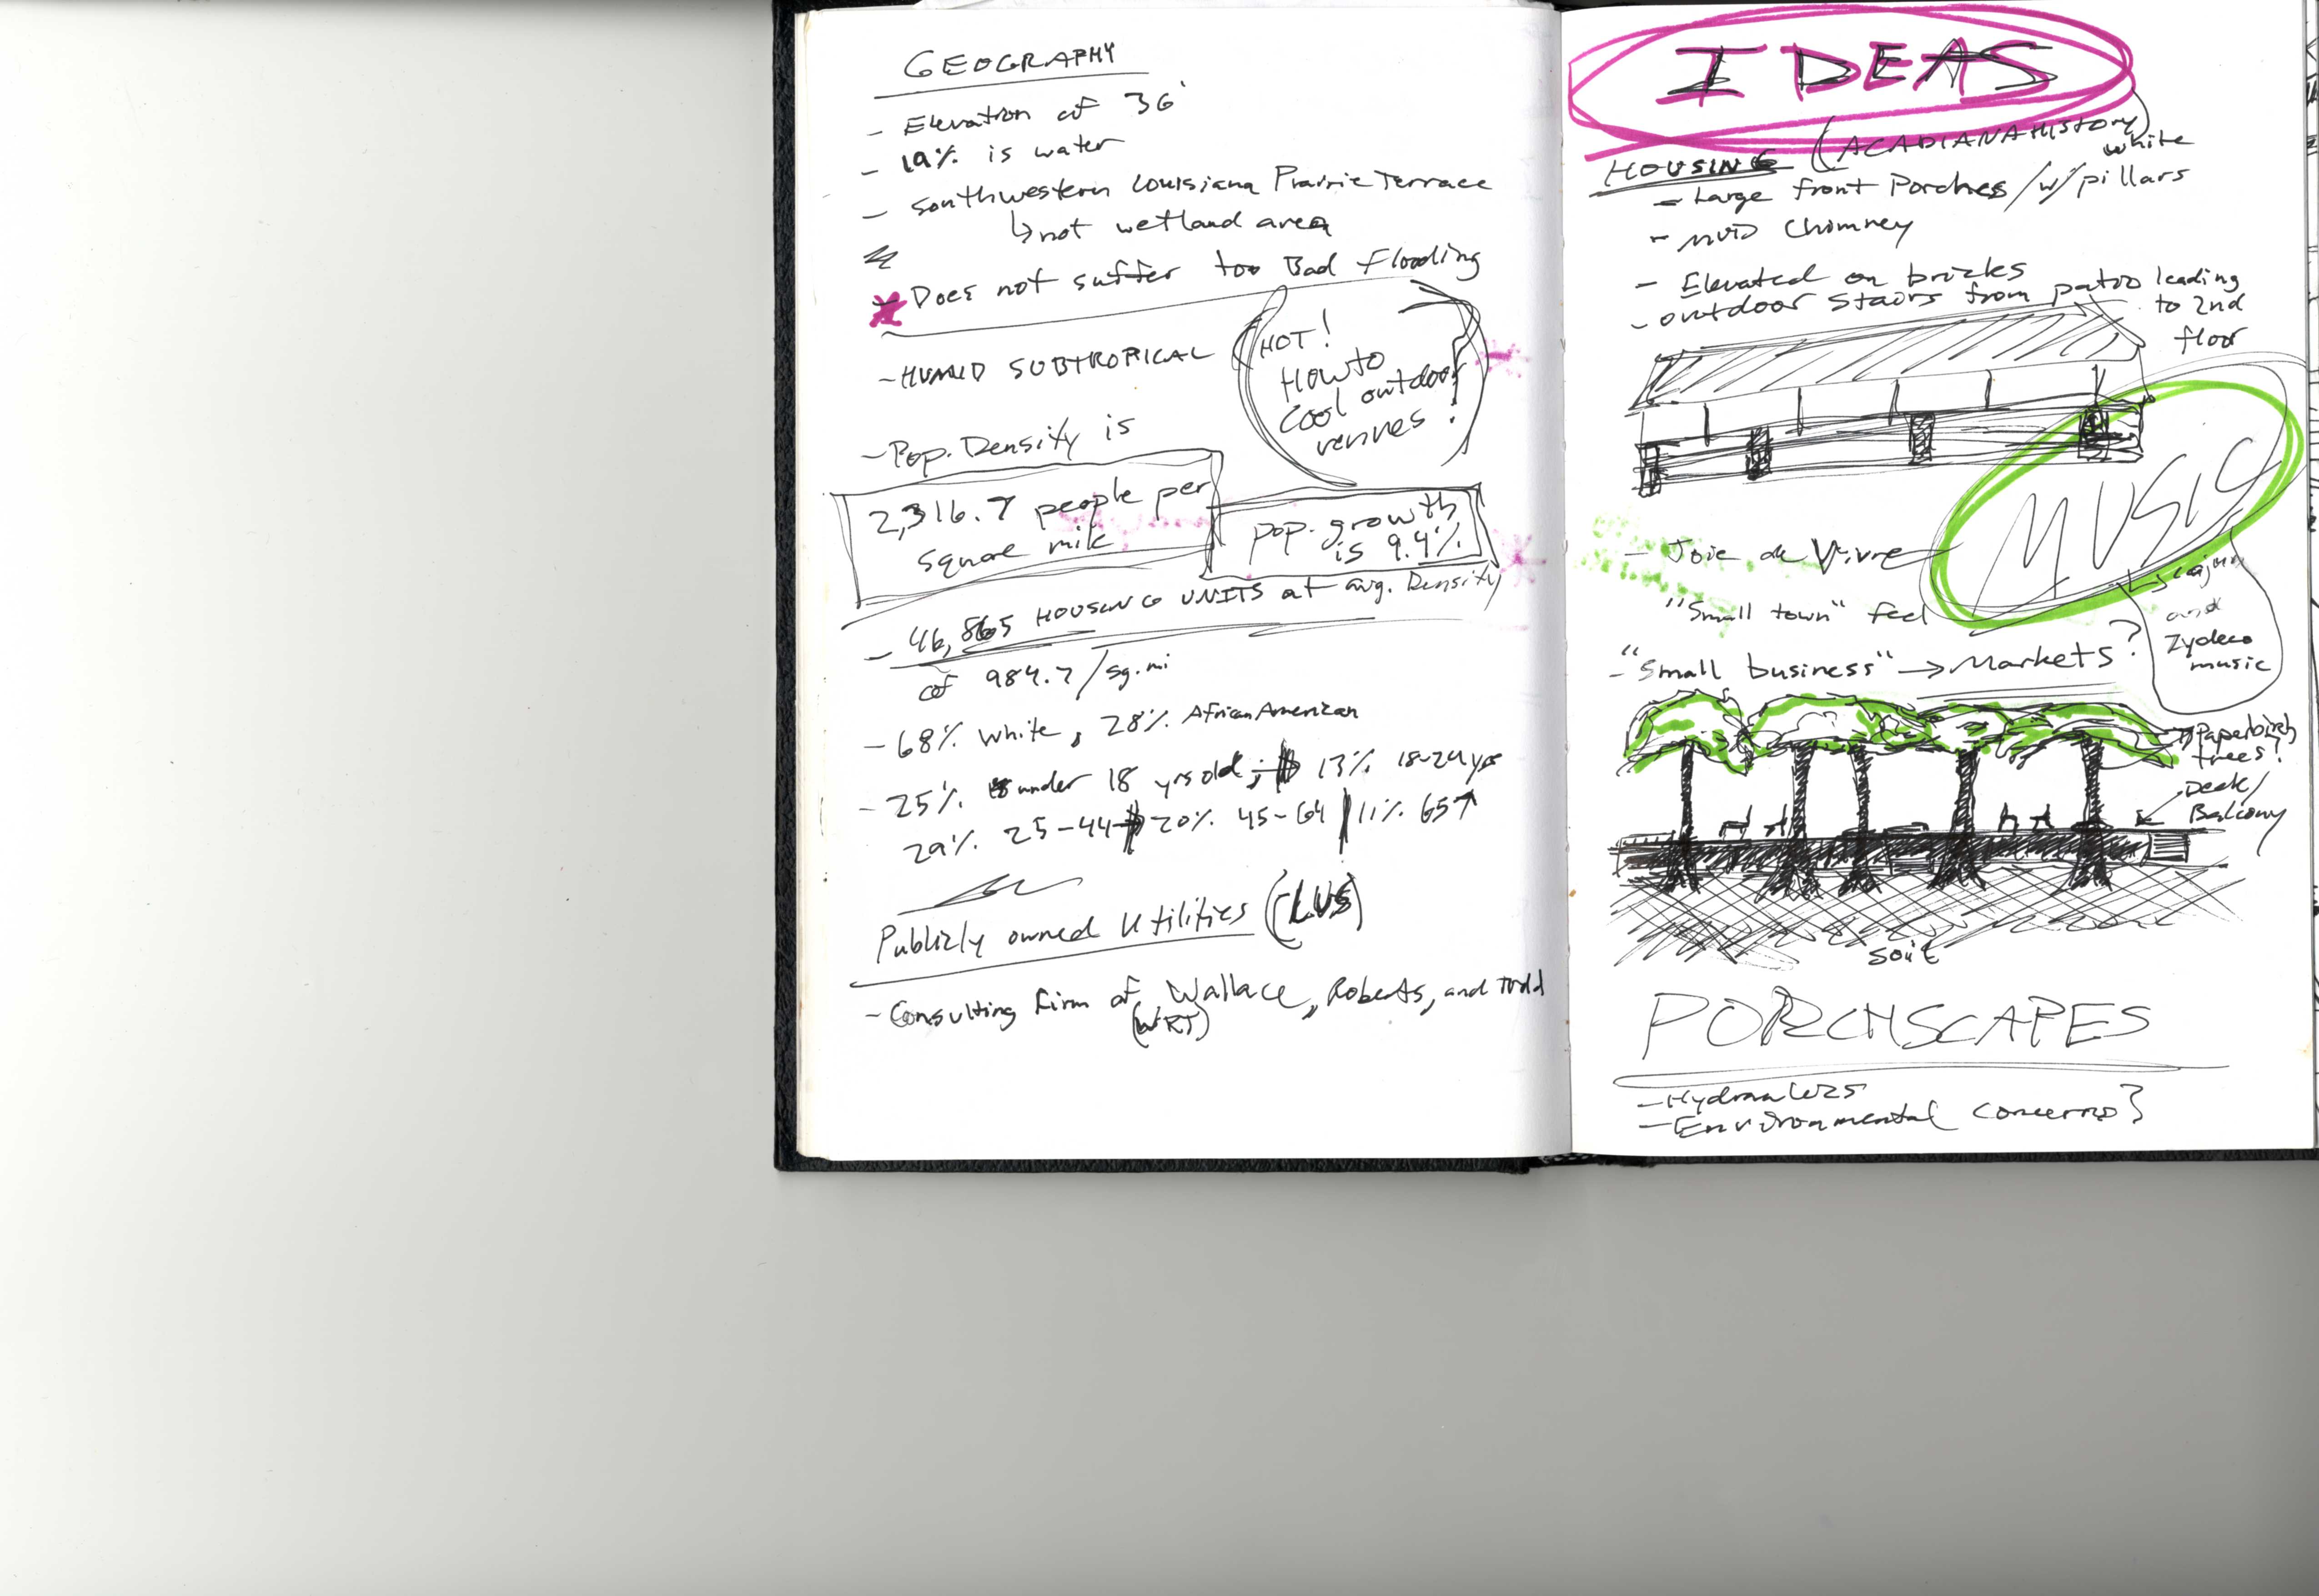 GEOGRAPHY
- Elevation of 36'
- 19% is water
- Southwestern Louisiana Prairie Terrace
↳ not wetland area
- Does not suffer too Bad Flooding
- HUMID SUBTROPICAL
(HOT!
How to
Cool outdoor
venues?
- Pop. Density is
2,316.7 people per
square mile
pop. growth
is 9.4%
- 46,865 HOUSING UNITS at avg. Density
of 984.7/sq.mi
- 68% white, 28% African American
- 25% under 18 yrs old; 13% 18-24 yrs
29% 25-44 20% 45-64 | 11% 65↑
Publicly owned Utilities (LUS)
- Consulting Firm of Wallace, Roberts, and Todd
(WRT)
IDEAS
HOUSING (ACADIANA HISTORY)
white
- Large front Porches / w/ pillars
- MUD Chimney
- Elevated on bricks
- outdoor stairs from patio leading
to 2nd
floor
MUSIC
- Joie de Vivre
↳ cajun
and
Zydeco
music
"Small town" feel
- "Small business" → Markets?
→ Paperbirch
trees?
Deck/
Balcony
soil
PORCHSCAPES
- Hydraulics
- Environmental Concerns}